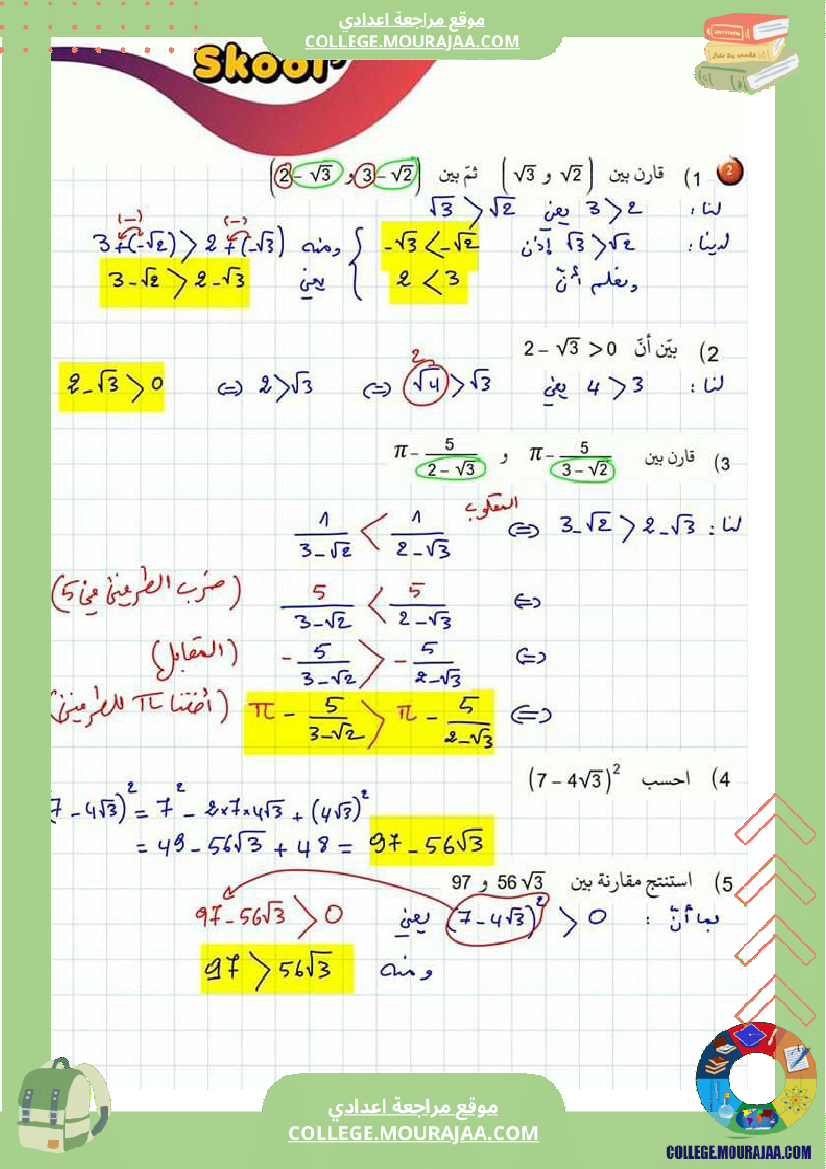 موقع مراجعة اعدادي
COLLEGE.MOURAJAA.COM
Skool
2 1) قارن بين (√2 و √3) ثمّ بين (3 − √2 و 2 − √3)
لنا: 3 > 2 يعني √3 > √2
لدينا: √3 > √2 إذن -√3 < -√2 ومنه 3 + (-√2) > 2 + (-√3)
(-) (-)
ونعلم أنّ 2 < 3 يعني 3 - √2 > 2 - √3
2) بيّن أنّ 2 − √3 > 0
لنا: 4 > 3 يعني √4 > √3 ⇔ 2 > √3 ⇔ 2 - √3 > 0
2
3) قارن بين π − 5/(3 − √2) و π − 5/(2 − √3)
لنا: 3 - √2 > 2 - √3 ⇔ 1/(3 - √2) < 1/(2 - √3) المقلوب
⇔ 5/(3 - √2) < 5/(2 - √3) (ضرب الطرفين في 5)
⇔ - 5/(3 - √2) > - 5/(2 - √3) (المقابل)
⇔ π - 5/(3 - √2) > π - 5/(2 - √3) (أضفنا π للطرفين)
4) احسب (7 − 4√3)²
7 - 4√3)² = 7² - 2×7×4√3 + (4√3)²
= 49 - 56√3 + 48 = 97 - 56√3
5) استنتج مقارنة بين 56√3 و 97
بما أنّ : (7 - 4√3)² > 0 يعني 97 - 56√3 > 0
ومنه 97 > 56√3
موقع مراجعة اعدادي
COLLEGE.MOURAJAA.COM
COLLEGE.MOURAJAA.COM